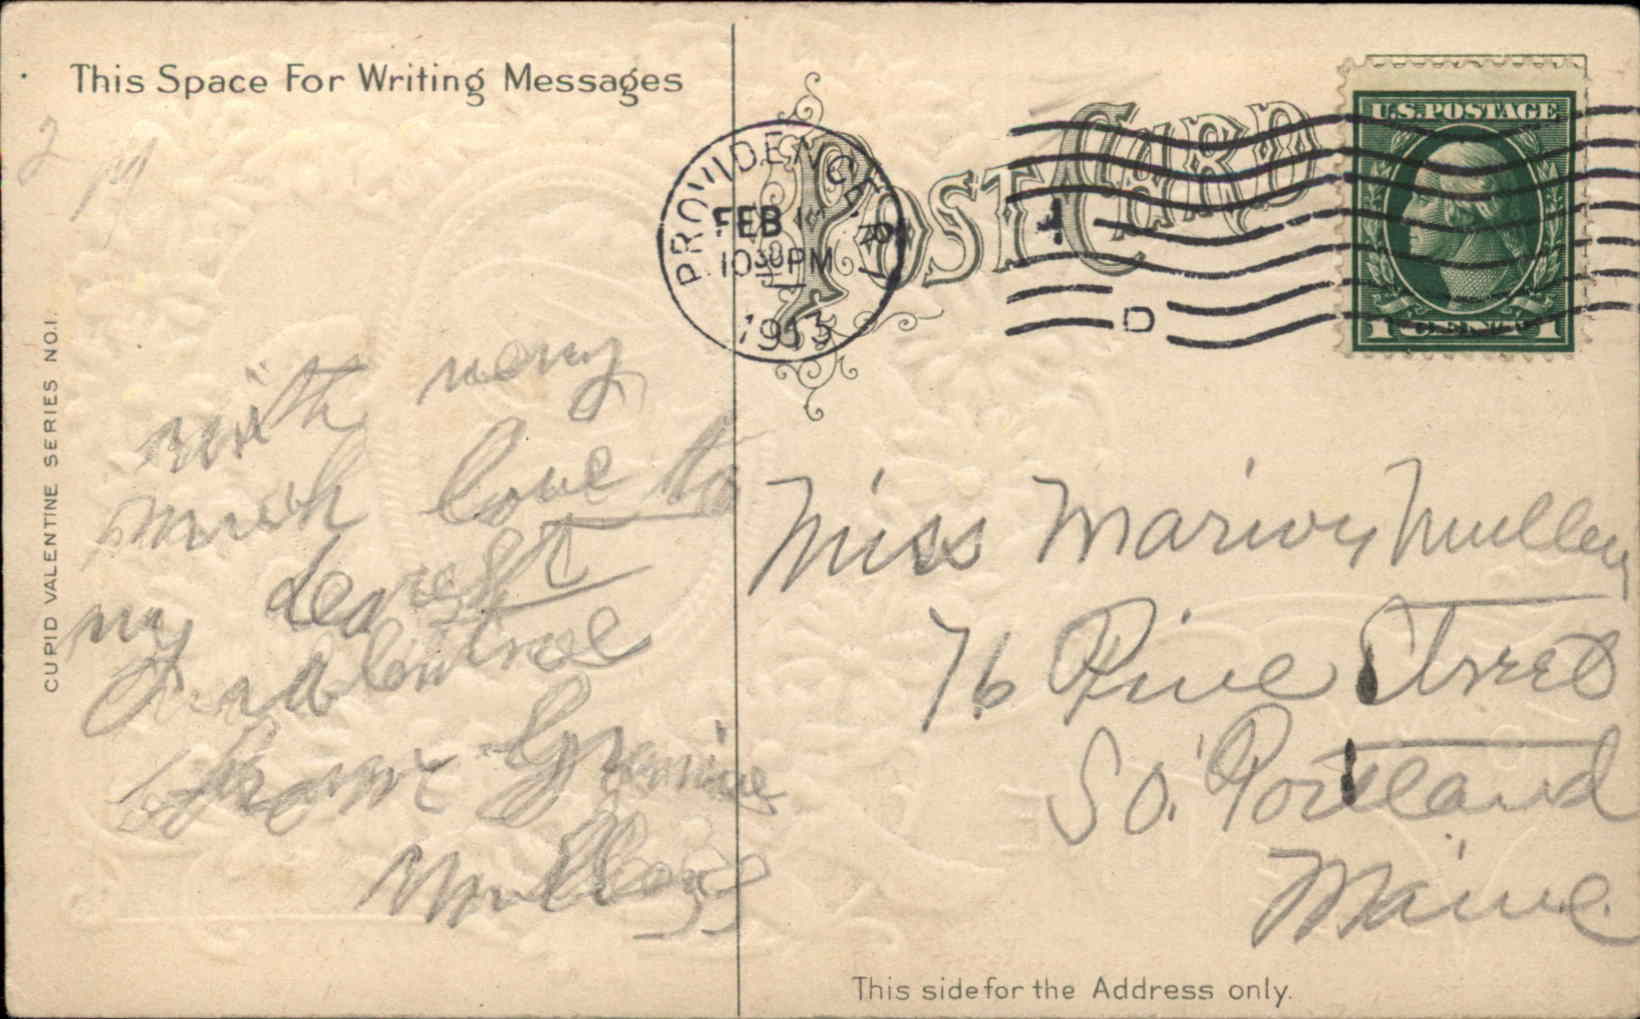 This Space For Writing Messages
CUPID VALENTINE SERIES NO.1.
with very
much love to
my dearest
Valentine
from Grannie
PROVIDENCE
FEB
10 30 PM
1913
POST CARD
D
U.S. POSTAGE
1 CENT 1
Miss Marion
76 Pine Street
So. Portland
Maine.
This side for the Address only.